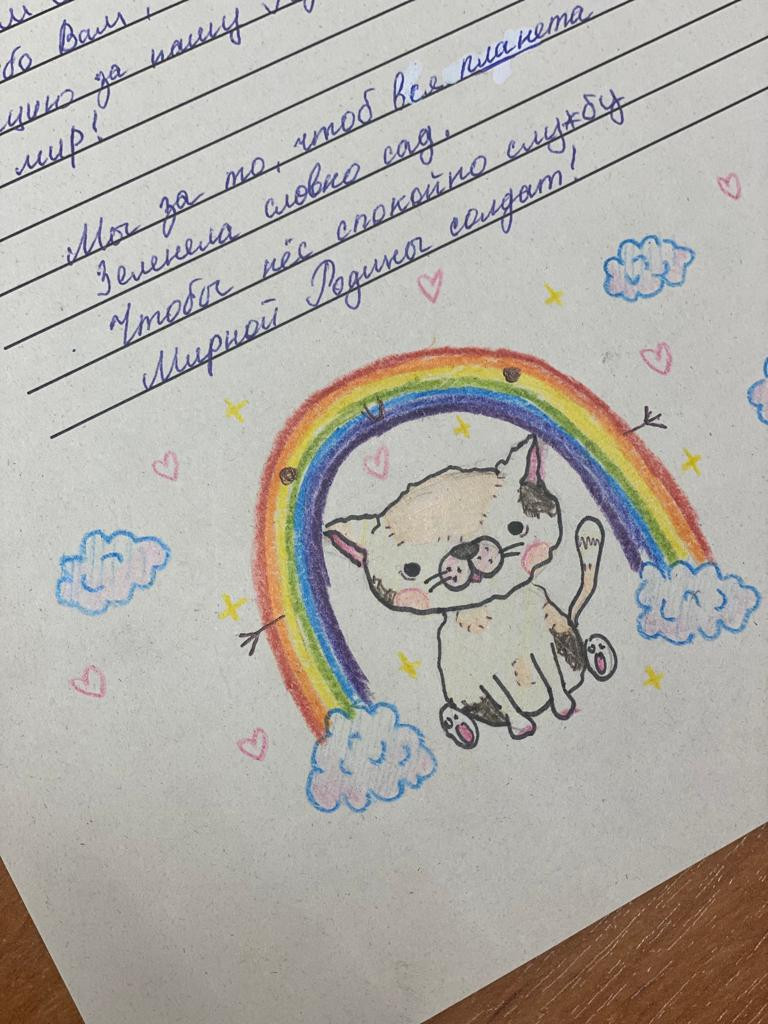 бо Вам,
за нашу
мир!
Мы за то, чтоб вся планета
Зеленела словно сад.
Чтобы нёс спокойно службу
Мирной Родины солдат!